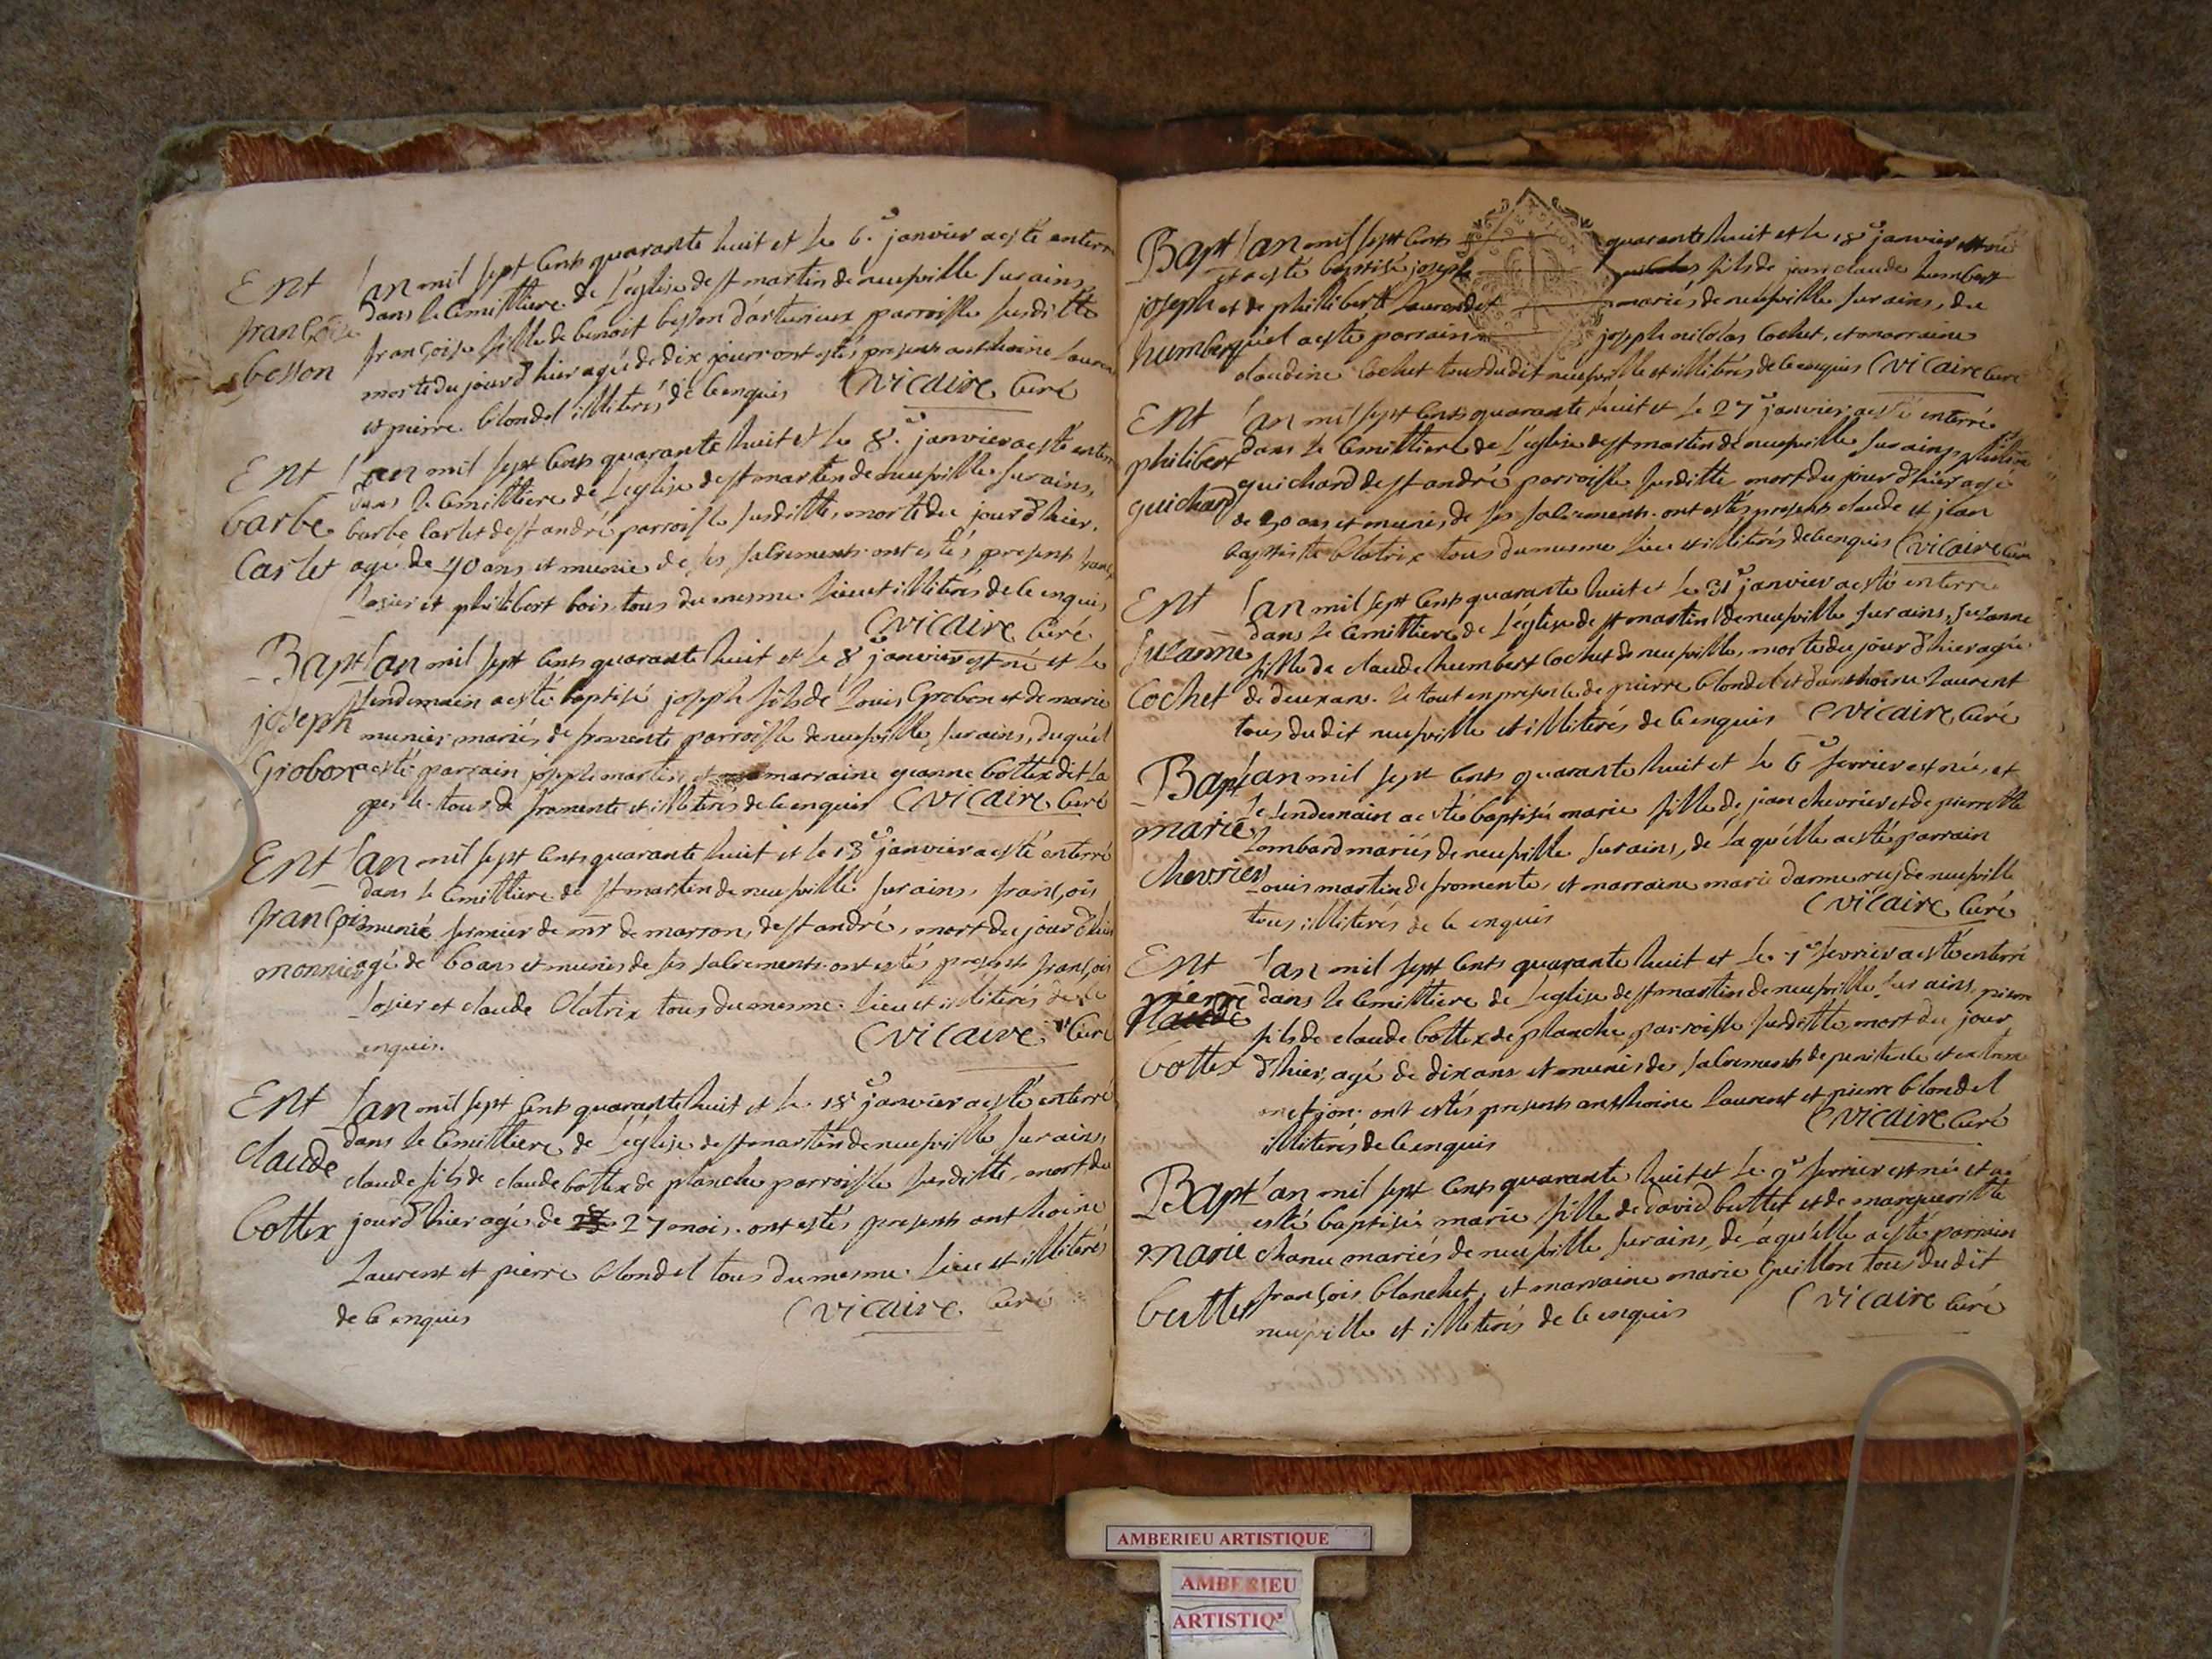 Ent
françoise
besson
l'an mil sept cents quarante huit et le 6e janvier a esté enterré
dans le cemittiere de l'église de st martin de neufville sur ains,
françoise fille de benoit besson d'arturieux parroisse susditte
morte du jour d'hier agée de dix jours ont estés presents anthoine Lauren
et pierre blondel illiterés de ce enquis C vicaire curé
Ent
barbe
Carlet
l'an mil sept cents quarante huit et le 8e janvier a esté enterré
dans le cemittiere de l'église de st martin de neufville sur ains,
barbe Carlet de st andré parroisse susditte, morte du jour d'hier,
agée de 40 ans et munie de ses sacrements. ont estés presents
Losier et philibert bois tous du mesme lieu et illiterés de ce enquis
C vicaire curé
Bapt
joseph
Grobon
l'an mil sept cents quarante huit et le 8e janvier est né et le
lendemain a esté baptisé joseph fils de Louis Grobon et de marie
munier mariés de fromente parroisse de neufville sur ains, duquel
a esté parrain joseph martin et marraine jeanne bottex dit la
tous de fromente et illiterés de ce enquis C vicaire curé
Ent
françois
monnier
l'an mil sept cents quarante huit et le 13e janvier a esté enterré
dans le cemittiere de st martin de neufville sur ains, françois
munié fermier de mr de marron, de st andré, mort du jour d'hier
agé de 60 ans et munis de ses sacrements. ont estés presents françois
Losier et claude Clatrix tous du mesme lieu et illiterés de ce
enquis. C vicaire curé
Ent
claude
bottex
l'an mil sept cents quarante huit et le 18e janvier a esté enterré
dans le cemittiere de l'église de st martin de neufville sur ains,
claude fils de claude bottex de planche parroisse susditte, mort du
jour d'hier agé de 27 mois. ont estés presents anthoine
Laurent et pierre blondel tous du mesme lieu et illiterés
de ce enquis C vicaire curé
Bapt
joseph
humbert
l'an mil sept cents quarante huit et le 18e janvier est né
et a esté baptisé joseph fils de jean claude humbert
et de philliberte mariés de neufville sur ains, du
quel a esté parrain joseph nicolas Cochet, et marraine
claudine Cochet tous dudit neufville et illiterés de ce enquis C vicaire curé
Ent
philibert
guichard
l'an mil sept cents quarante huit et le 27e janvier a esté enterré
dans le cemittiere de l'église de st martin de neufville sur ains philibert
guichard de st andré parroisse susditte mort du jour d'hier agé
de ans et munis de ses sacrements. ont estés presents claude et jean
baptiste Clatrix tous du mesme lieu et illiterés de ce enquis C vicaire curé
Ent
Suzanne
Cochet
l'an mil sept cents quarante huit et le 31e janvier a esté enterré
dans le cemittiere de l'église de st martin de neufville sur ains, Suzanne
fille de claude humbert Cochet de neufville, morte du jour d'hier agée
de deux ans. le tout en presence de pierre blondel et d'anthoine Laurent
tous dudit neufville et illiterés de ce enquis C vicaire curé
Bapt
marie
chevrier
l'an mil sept cents quarante huit et le 6e fevrier est née, et
le lendemain a esté baptisée marie fille de jean chevrier et de pierrette
Lombard mariés de neufville sur ains, de laquélle a esté parrain
Louis martin de fromente, et marraine marie de neufville
tous illiterés de ce enquis C vicaire curé
Ent
pierre
claude
bottex
l'an mil sept cents quarante huit et le 7e fevrier a esté enterré
dans le cemittiere de l'église de st martin de neufville sur ains, pierre
fils de claude bottex de planche parroisse susditte mort du jour
d'hier, agé de dix ans et munis de sacrements de penitence et extreme
onction. ont estés presents anthoine Laurent et pierre blondel
illiterés de ce enquis C vicaire curé
Bapt
marie
buttet
l'an mil sept cents quarante huit et le 9e fevrier est née et a
esté baptisée marie fille de david buttet et de marguerite
chanu mariés de neufville sur ains, de laquélle a esté parrain
françois blanchet, et marraine marie Guillon tous dudit
neufville et illiterés de ce enquis C vicaire curé
AMBERIEU ARTISTIQUE
AMBERIEU
ARTISTIQ